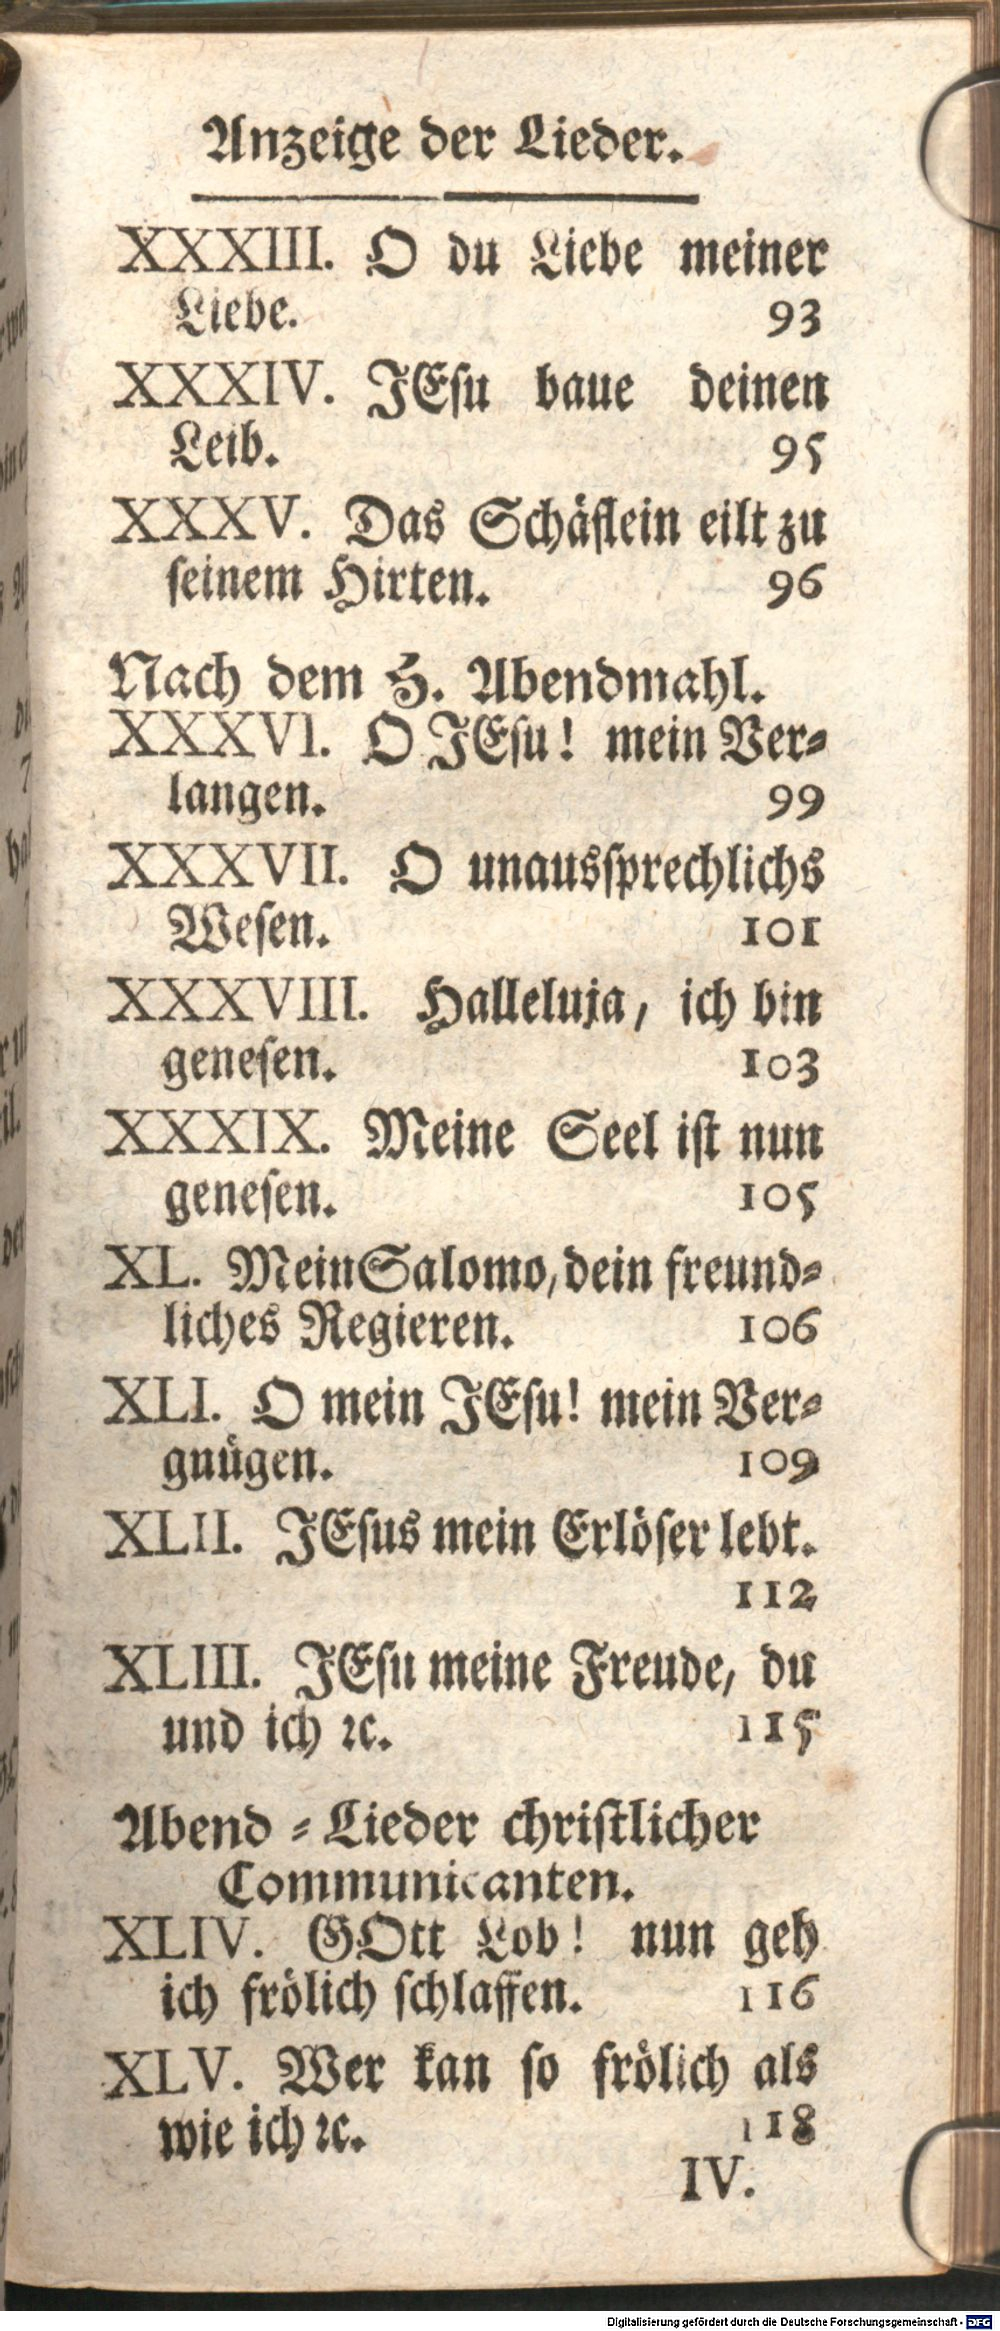 Anzeige der Lieder.
XXXIII. O du Liebe meiner
Liebe. 93
XXXIV. JEſu baue deinen
Leib. 95
XXXV. Das Schäflein eilt zu
ſeinem Hirten. 96
Nach dem H. Abendmahl.
XXXVI. O JEſu! mein Ver⸗
langen. 99
XXXVII. O unausſprechlichs
Weſen. 101
XXXVIII. Halleluja, ich bin
geneſen. 103
XXXIX. Meine Seel iſt nun
geneſen. 105
XL. Mein Salomo, dein freund⸗
liches Regieren. 106
XLI. O mein JEſu! mein Ver⸗
gnügen. 109
XLII. JEſus mein Erlöſer lebt.
112
XLIII. JEſu meine Freude, du
und ich ꝛc. 115
Abend⸗Lieder chriſtlicher
Communicanten.
XLIV. GOtt Lob! nun geh
ich frölich ſchlaffen. 116
XLV. Wer kan ſo frölich als
wie ich ꝛc. 118
IV.
Digitalisierung gefördert durch die Deutsche Forschungsgemeinschaft - DFG